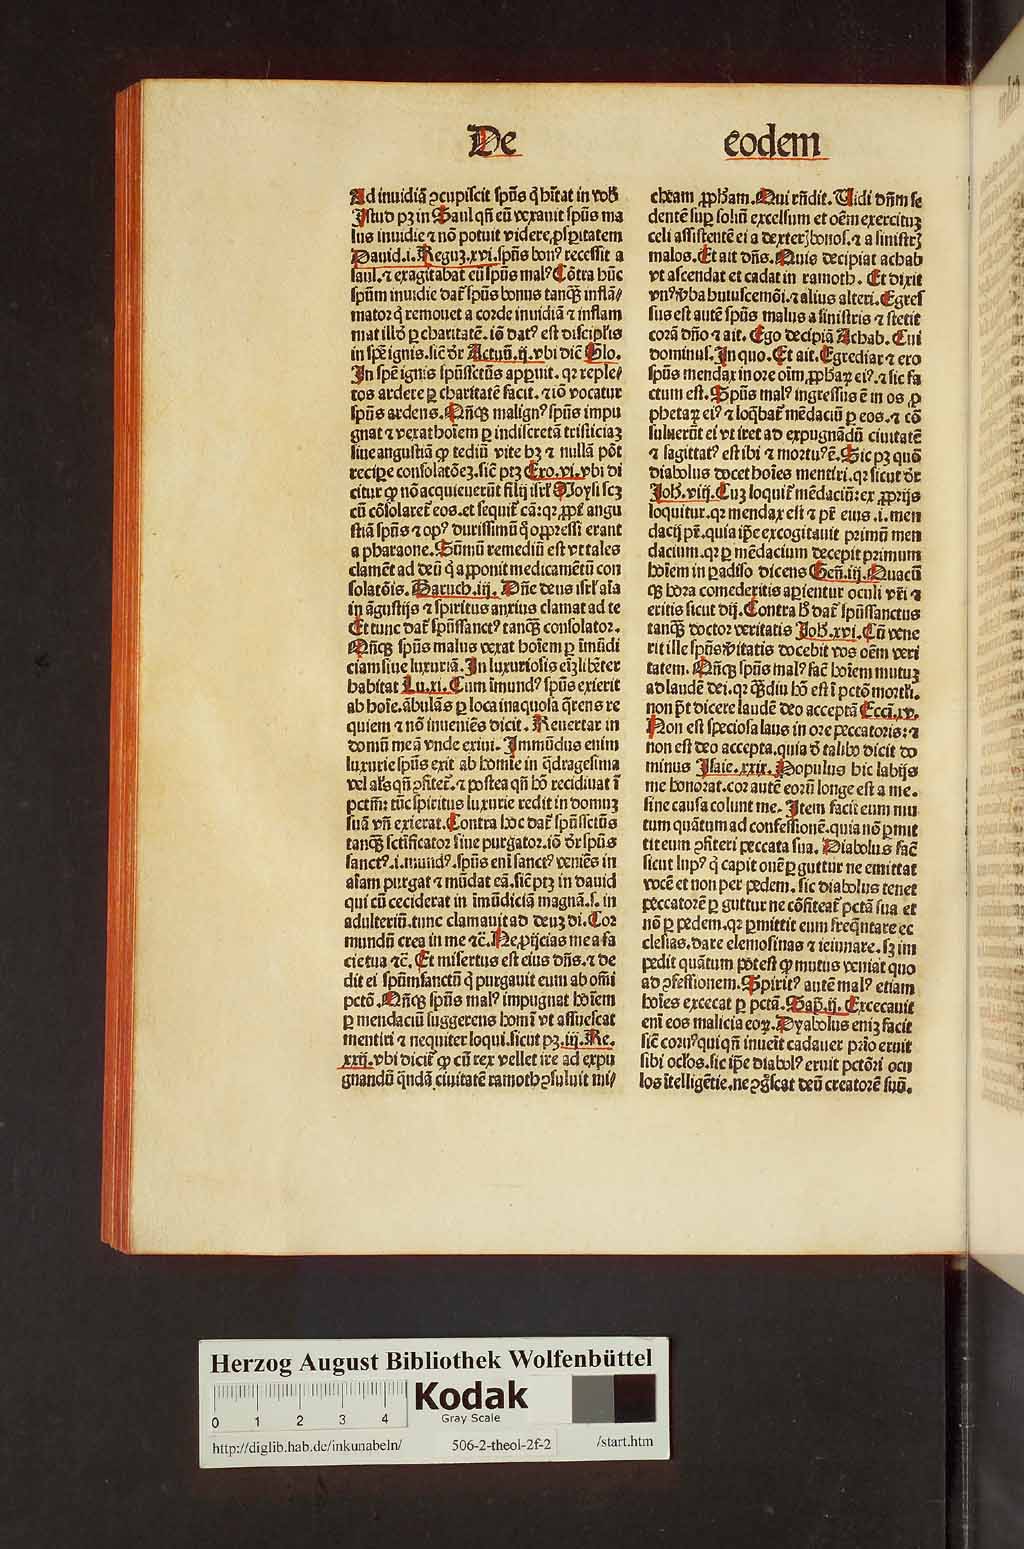 De eodem
Ad inuidiā ꝯcupiſcit ſpūs q̇ hītat in vob̄
Iſtud pꝫ in Saul qn̄ eū vexauit ſpūs ma
lus inuidie ⁊ nō potuit videre ꝓſꝑitatem
Dauid .i. Reguꝫ .xvi. ſpūs bonꝰ receſſit a
ſaul. ⁊ exagitabat eū ſpūs malꝰ Cōtra hūc
ſpūm inuidie dat̄ ſpūs bonus tanq̄ꝫ inflā/
mator q̇ remouet a corde inuidiā ⁊ inflam
mat illd̄ ꝑ charitatē. iō datꝰ eſt diſciplīs
in ſpē ignis. ſic̄ dr̄ Actuū .ij. vbi dic̄ Glo.
In ſpē ignis ſpūſſctūs apꝑuit. qꝛ reple/
tos ardere ꝑ charitatē facit. ⁊ iō vocatur
ſpūs ardens. Nn̄qꝫ malignꝰ ſpūs impu
gnat ⁊ vexat hoīem ꝑ indiſcretā triſticiaꝫ
ſiue anguſtiā ꝙ tediū vite hꝫ ⁊ nullā pōt
reciꝑe conſolatōeꝫ. ſic̄ ptꝫ Exo. vi. vbi di
citur ꝙ nō acquieuerūt filij iſrl̄ Moyſi ſcꝫ
cū cōſolaret̄ eos. et ſequit̄ cā: qꝛ ꝓpt̄ angu
ſtiā ſpūs ⁊ opꝰ duriſſimū q̊ oppreſſi erant
a pharaone. Sūmū remediū eſt vt tales
clamēt ad deū q̇ apponit medicamētū con
ſolatōis. Baruch .iij. Dn̄e deus iſrl̄ aīa
in āguſtijs ⁊ ſpiritus anxius clamat ad te
Et tunc dat̄ ſpūſſanctꝰ tanq̄ꝫ conſolator.
Nn̄qꝫ ſpūs malus vexat hoīem ꝑ īmūdi
ciam ſiue luxuriā. In luxurioſis ei̅ꝫ libēter
habitat Lu. xi. Cum īmundꝰ ſpūs exierit
ab hoīe. ābulās ꝑ loca inaquoſa q̄rens re
quiem ⁊ nō inueniēs dicit. Reuertar in
domū meā vnde exiui. Immūdus enim
luxurie ſpūs exit ab homīe in q̄drageſima
vel al̄s qn̄ ꝯfitet̄. ⁊ poſtea qn̄ hō recidiuat ī
pctm̄: tūc ſpiritus luxurie redit in domuꝫ
ſuā vn̄ exierat. Contra hoc dat̄ ſpūſſctūs
tanq̄ꝫ ſctīficator ſiue purgator. iō dr̄ ſpūs
ſanctꝰ .i. mundꝰ. ſpūs enī ſanctꝰ veniēs in
aīam purgat ⁊ mūdat eā. ſic̄ ptꝫ in dauid
qui cū ceciderat in īmūdiciā magnā. ſ. in
adulteriū. tunc clamauit ad deuꝫ di. Cor
mundū crea in me ⁊c̄. Ne ꝓijcias me a fa
cie tua ⁊c̄. Et miſertus eſt eius dn̄s. ⁊ de
dit ei ſpūmſanctū q̇ purgauit eum ab om̄i
pctō. Nn̄qꝫ ſpūs malꝰ impugnat hoīem
ꝑ mendaciū ſuggerens homī vt aſſueſcat
mentiri ⁊ nequiter loqui. ſicut pꝫ .iij. Re.
xxij. vbi dicit̄ ꝙ cū rex vellet ire ad expu
gnandū q̄ndā ciuitatē ramoth ꝯſuluit mi/
cheam ꝓph̄am. Qui rn̄dit. Uidi dn̄m ſe
dentē ſuꝑ ſoliū excelſum et oēm exercituꝫ
celi aſſiſtentē ei a dexterꝭ bonos. ⁊ a ſiniſtrꝭ
malos. Et ait dn̄s. Quis decipiat achab
vt aſcendat et cadat in ramoth. Et dixit
vnꝰ v̄ba huiuſcemōi. ⁊ alius alteri. Egreſ
ſus eſt autē ſpūs malus a ſiniſtris ⁊ ſtetit
corā dn̄o ⁊ ait. Ego decipiā Achab. Cui
dominus. In quo. Et ait. Egrediar ⁊ ero
ſpūs mendax in ore oīm ꝓphaꝝ eiꝰ. ⁊ ſic fa
ctum eſt. Spūs malꝰ ingreſſus ē in os ꝓ
phetaꝝ eiꝰ ⁊ loq̄bat̄ mēdaciū ꝑ eos. ⁊ cō
ſuluerūt ei vt iret ad expugnādū ciuitatē
⁊ ſagittatꝰ eſt ibi ⁊ mortuꝰ ē. Sic pꝫ quō
diabolus docet hoīes mentiri. qꝛ ſicut dr̄
Joh̄. viij. Cuꝫ loquit̄ mēdaciū: ex ꝓprijs
loquitur. qꝛ mendax eſt ⁊ pr̄ eius .i. men
dacij pr̄. quia ip̄e excogitauit primū men
dacium. qꝛ ꝑ mēdacium decepit primum
hoīem in ꝑadiſo dicens Gen̄. iij. Quacū
qꝫ hora comederitis aꝑientur oculi vr̄i ⁊
eritis ſicut dij. Contra h̄ dat̄ ſpūſſanctus
tanq̄ꝫ doctor veritatis Joh̄. xvi. Cū vene
rit ille ſpūs v̄itatis docebit vos oēm veri
tatem. Nn̄qꝫ ſpūs malꝰ fac̄ hoīem mutuꝫ
ad laudē dei. qꝛ q̄ꝫdiu hō eſt ī pctō mortl̄i.
non pt̄ dicere laudē deo acceptā Ecci̅. xv.
Non eſt ſpecioſa laus in ore peccatoris: ⁊
non eſt deo accepta. quia d̄ tali hō dicit do
minus Iſaie. xxix. Populus hic labijs
me honorat. cor autē eorū longe eſt a me.
ſine cauſa colunt me. Item facit eum mu
tum quātum ad confeſſionē. quia nō ꝑmit
tit eum ꝯfiteri peccata ſua. Diabolus fac̄
ſicut lupꝰ q̇ capit ouē ꝑ guttur ne emittat
vocē et non per pedem. ſic diabolus tenet
peccatorē ꝑ guttur ne cōfiteat̄ pctā ſua et
nō ꝑ pedem. qꝛ ꝑmittit eum freq̄ntare ec
cleſias. dare elemoſinas ⁊ ieiunare. ſꝫ im
pedit quātum pōt eſt ꝙ mutus veniat quo
ad ꝯfeſſionem. Spiritꝰ autē malꝰ etiam
hoīes excecat ꝑ pctā. Sap̄. ij. Excecauit
enī eos malicia eoꝝ. Dyabolus enīꝫ facit
ſic̄ coruꝰ qui qn̄ inueīt cadauer pr̄io eruit
ſibi oclo̅s. ſic ip̄e diabolꝰ eruit pctōri ocu
los ītelligētie. ne ꝯgſ̄cat deū creatorē ſuū.
Herzog August Bibliothek Wolfenbüttel
0 1 2 3 4
Kodak
Gray Scale
http://diglib.hab.de/inkunabeln/ 506-2-theol-2f-2 /start.htm